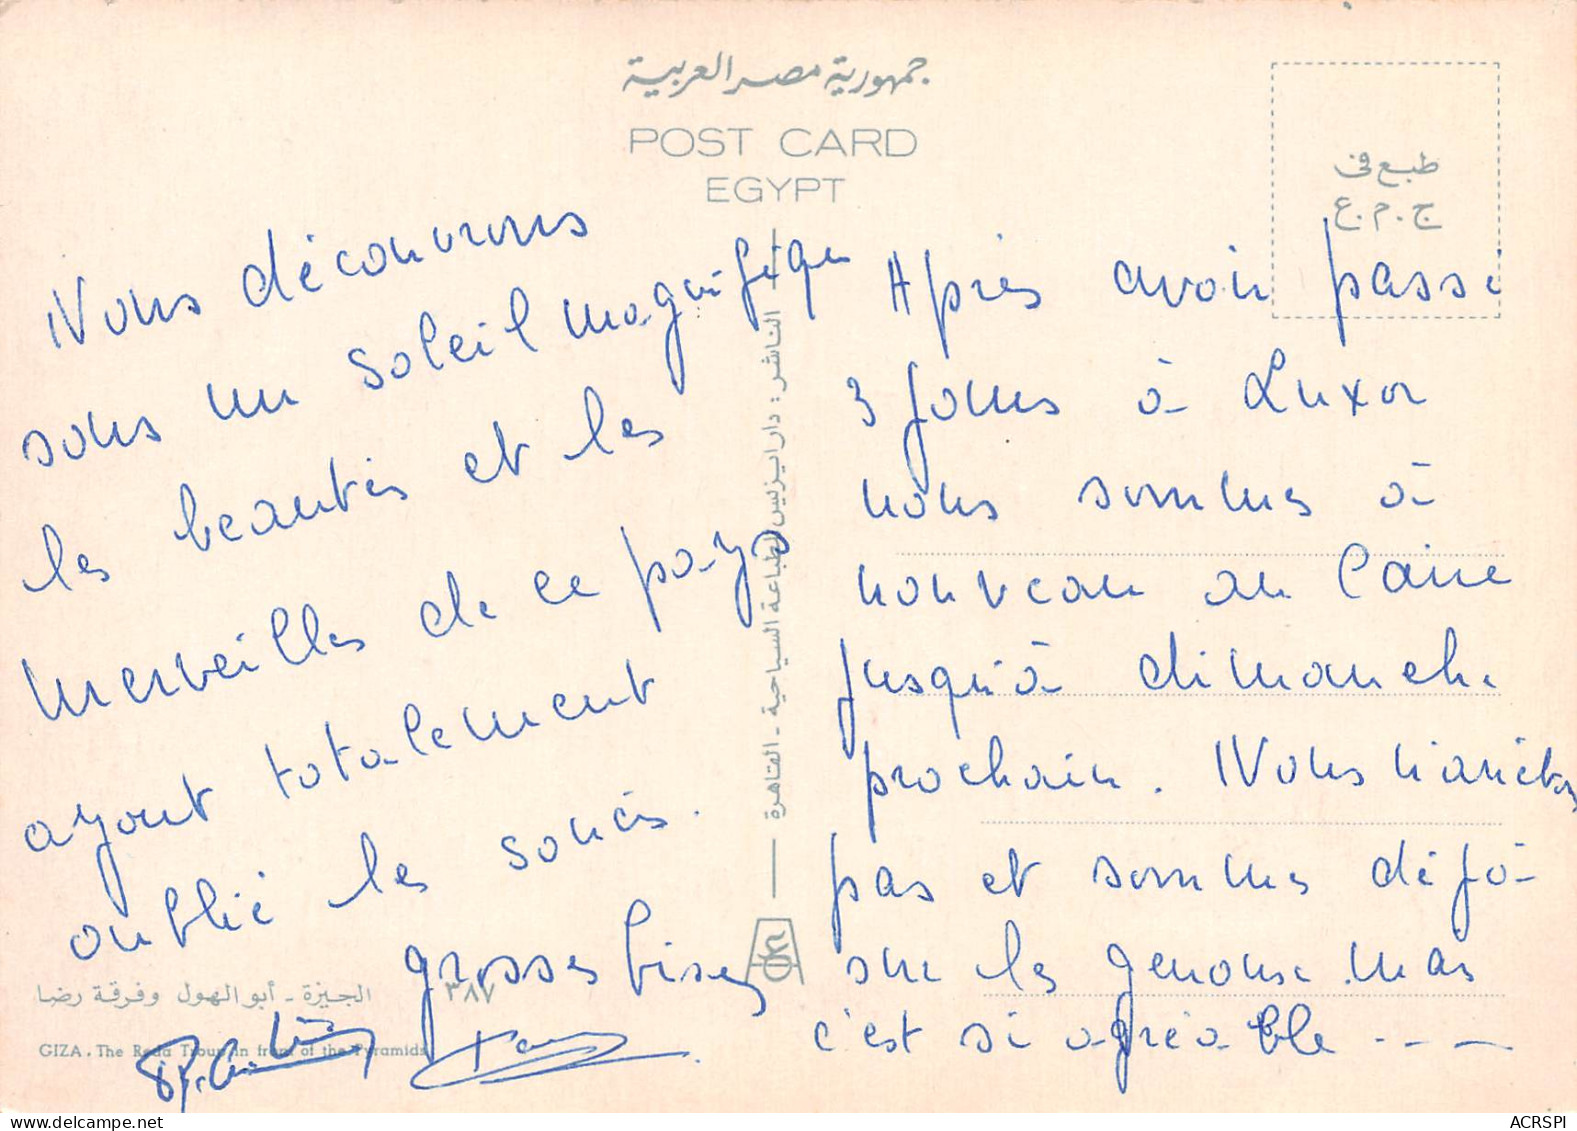 جمهورية مصر العربية
POST CARD
EGYPT
طبع في
ج.م.ع
Nous découvrons
sous un soleil magnifique
les beautés et les
merveilles de ce pays
ayant totalement
oublié les soucis.
grosses bises
Après avoir passé
3 jours à Luxor
nous sommes à
nouveau au Caire
jusqu'à dimanche
prochain. Nous n'arrêtons
pas et sommes déjà
sur les genoux mais
c'est si agréable ----
الناشر : دار ايزيس للطباعة السياحية - القاهرة
الجيزة - أبو الهول وفرقة رضا
٣٨٧
GIZA. The Reda Troup in front of the Pyramids
ACRSPI